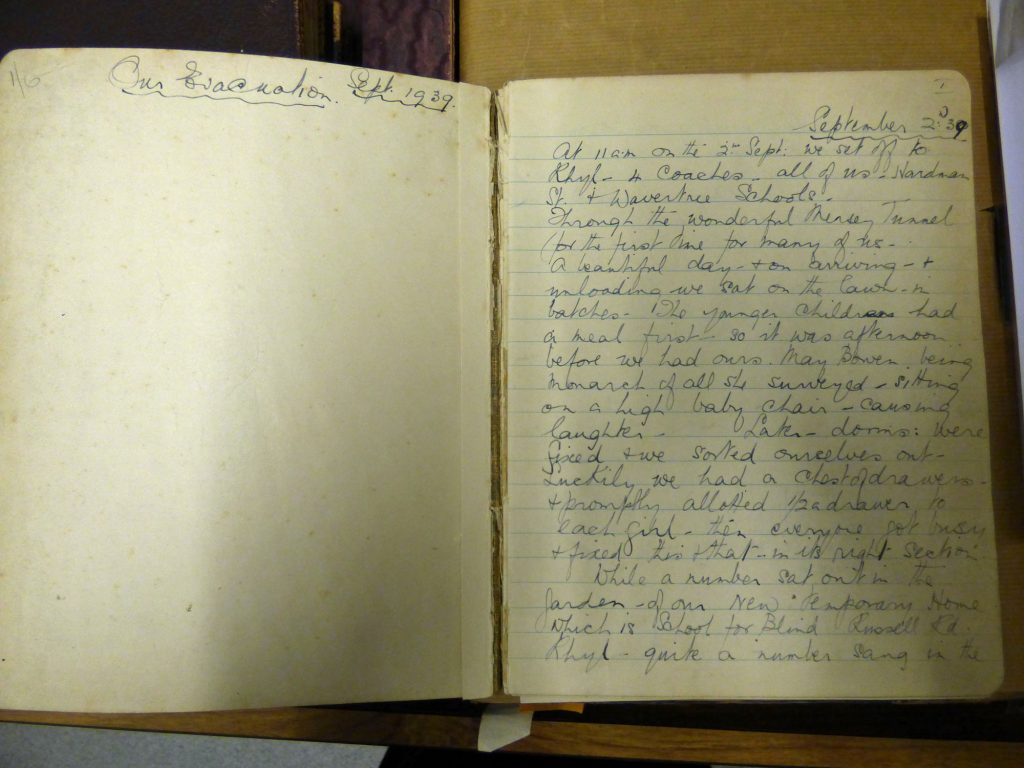 1/6
Our Evacuation. Sept. 1939.
1
September 2nd 39
At 11 am on the 2nd Sept: we set off to
Rhyl - 4 coaches - all of us - Hardman
St. & Wavertree Schools -
Through the wonderful Mersey Tunnel
for the first time for many of us -
A beautiful day - & on arriving - &
unloading we sat on the lawn - in
batches - The younger children had
a meal first - so it was afternoon
before we had ours. May Bowen being
monarch of all she surveyed - sitting
on a high baby chair - causing
laughter - Later - dorms: were
fixed & we sorted ourselves out -
Luckily we had a chest of drawers -
& promptly allotted 1/2 a drawer to
each girl - then everyone got busy
& fixed this & that - in its right section
While a number sat out in the
garden - of our New Temporary Home
which is School for Blind Russell Rd.
Rhyl - quite a number sang in the